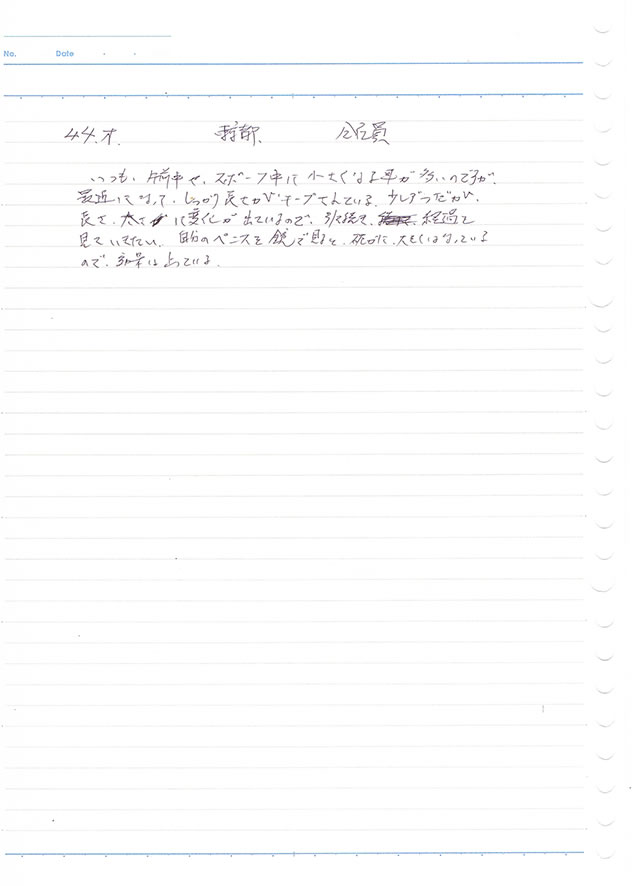 No.
Date
44.才. 会社員
いつも、午前中や、スポーツ中に小さくなる事が多いのですが、
最近になって、しっかり長さがキープされている。少しずつだが、
長さ、太さに変化が出ているので、引続き、経過を
見ていきたい。自分のペニスを鏡で見ると、確かに、大きくはなっている
ので、効果は上っている。